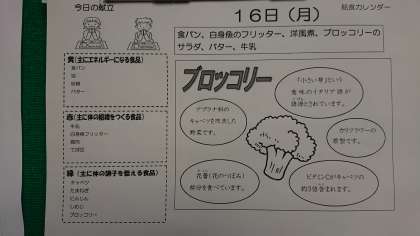 今日の献立
給食カレンダー
16日(月)
食パン、白身魚のフリッター、洋風煮、ブロッコリーの
サラダ、バター、牛乳
黄(主にエネルギーになる食品)
食パン
油
砂糖
バター
赤(主に体の組織をつくる食品)
牛乳
白身魚フリッター
鶏肉
緑(主に体の調子を整える食品)
キャベツ
たまねぎ
にんじん
しめじ
ブロッコリー
ブロッコリー
「小さい芽」という
意味のイタリア語が
語源とされています。
アブラナ科の
キャベツを改良した
野菜です。
カリフラワーの
原型です。
花蕾(花のつぼみ)
部分を食べています。
ビタミンCがキャベツの
約3倍含まれます。